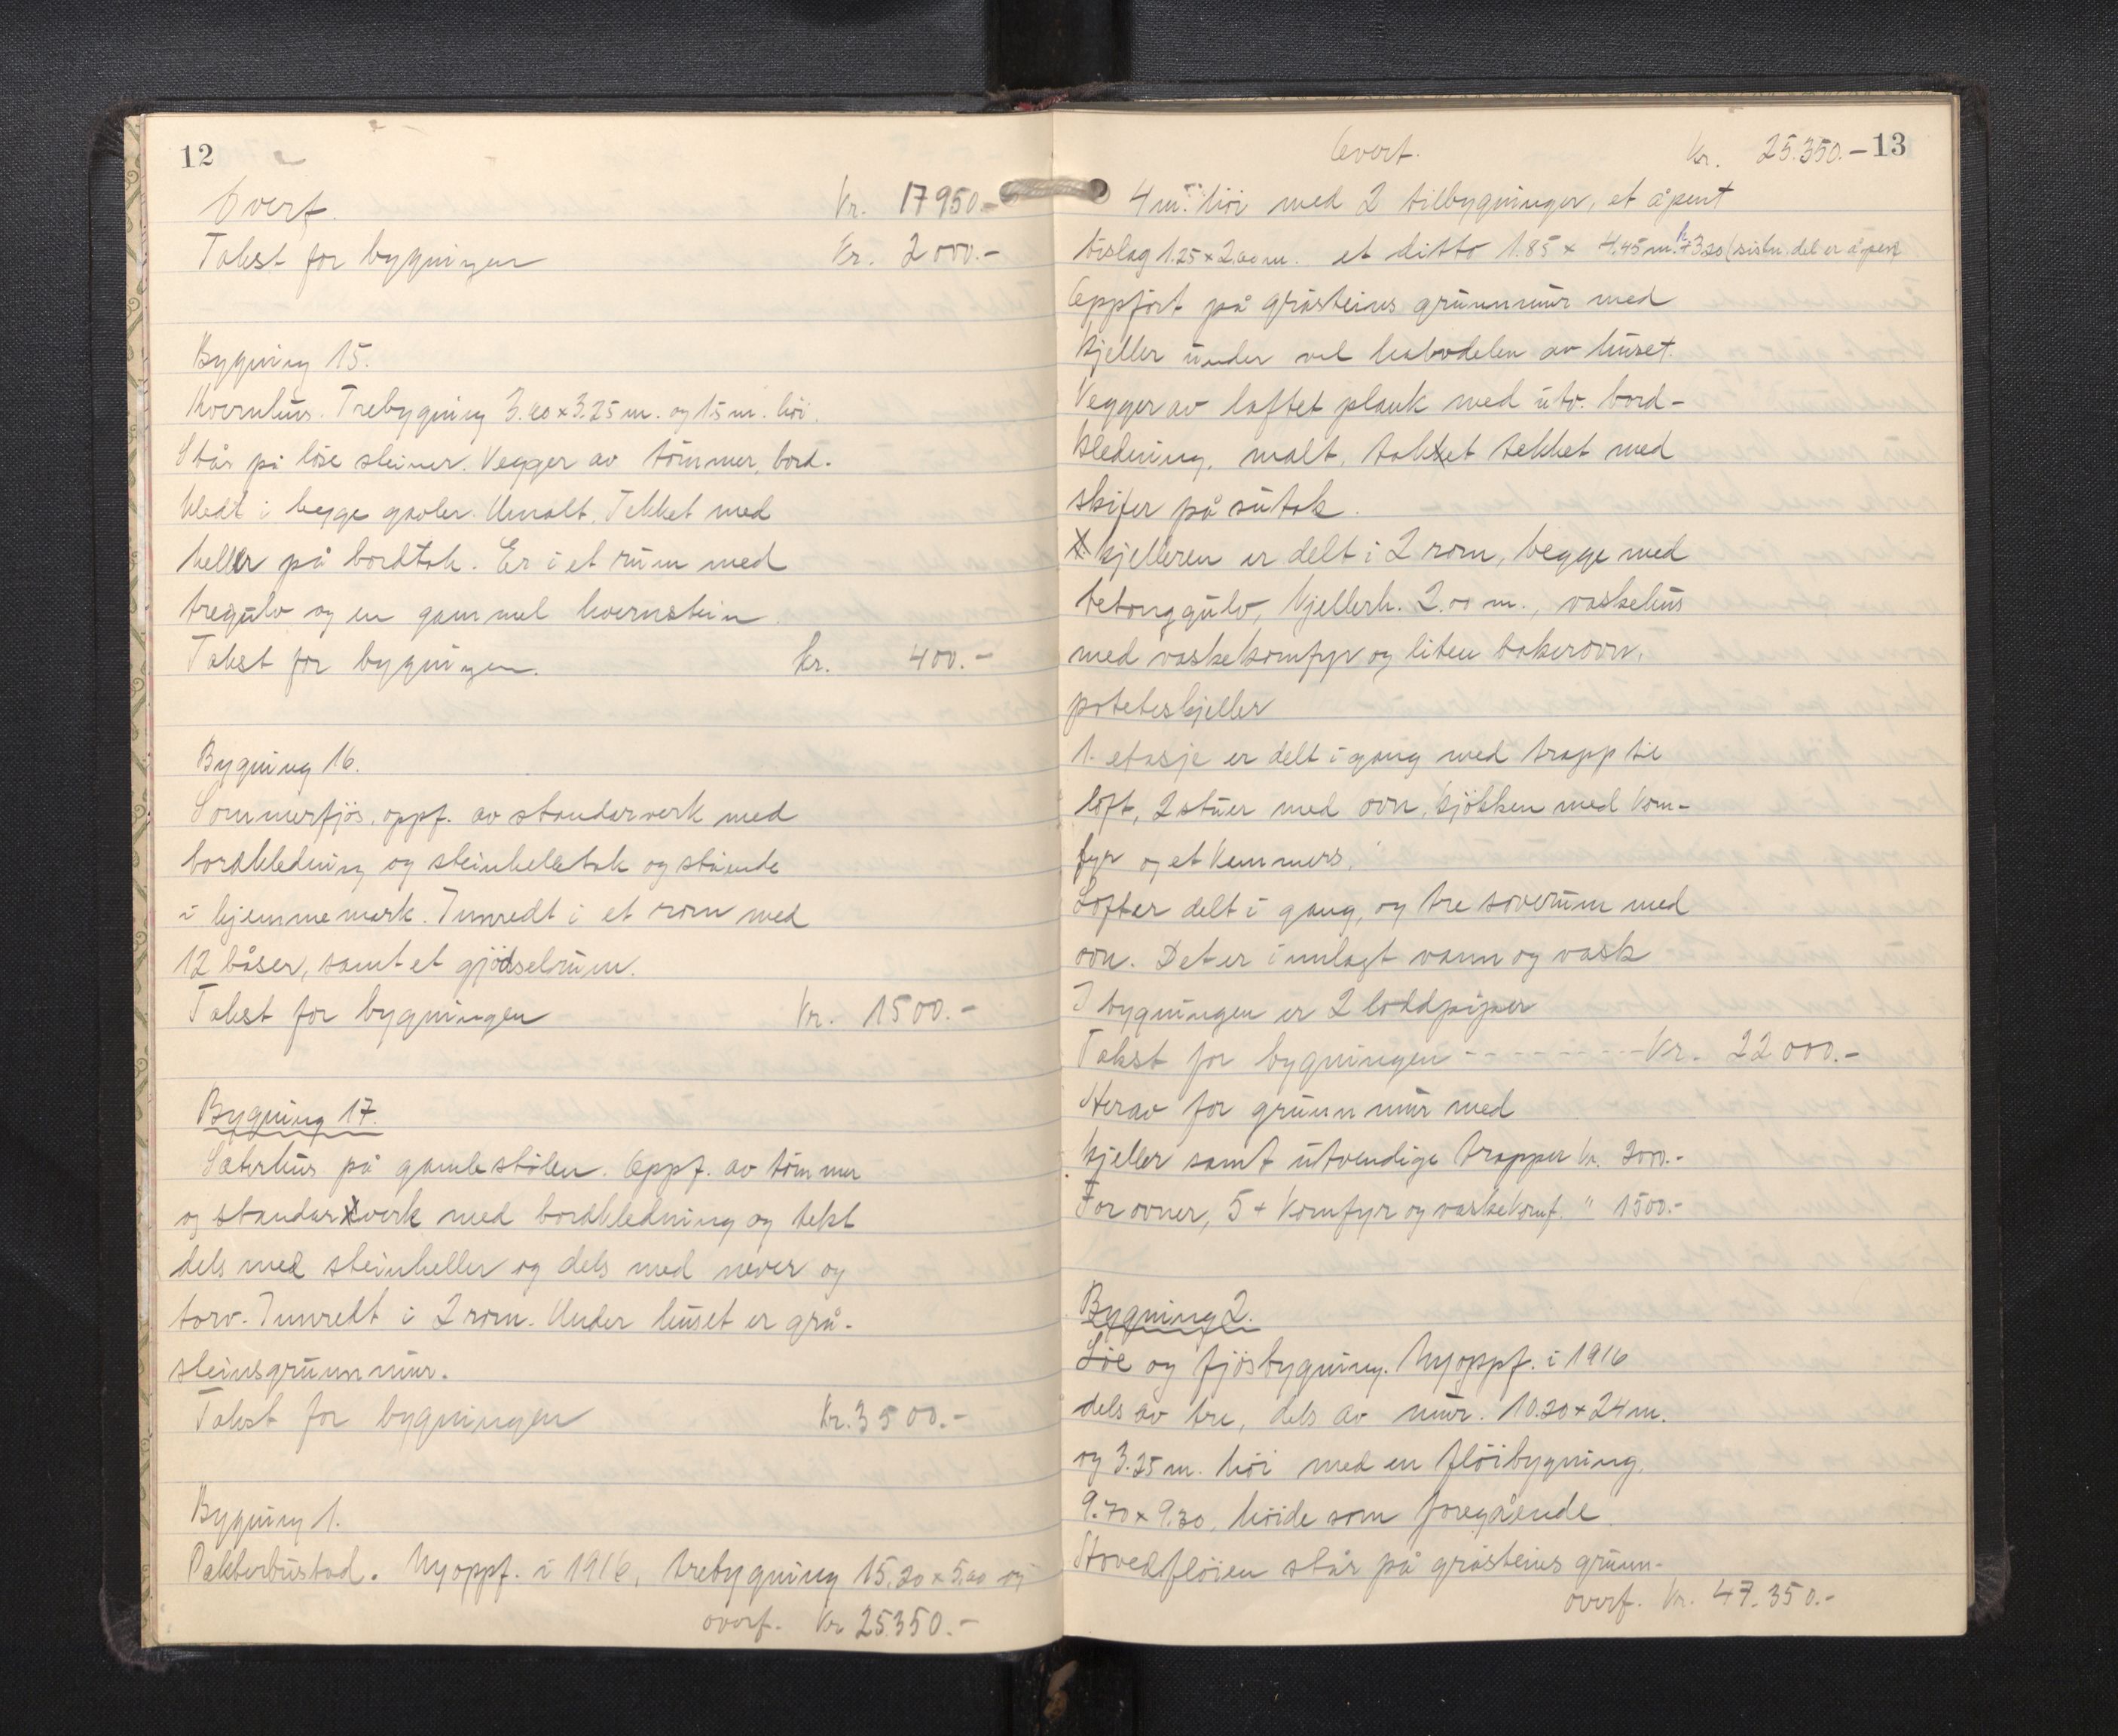 12
Overf. Kr. 17950.-
Takst for bygningen Kr. 2000.-
Bygning 15.
Kvernhus. Trebygning 3.40 x 3.25 m. og 1.5 m. høi.
Står på löse steiner. Vegger av tömmer, bord-
kledt i begge gavler. Umalt. Tekket med
heller på bordtak. Er i et rum med
tregulv og en gammel kvernstein.
Takst for bygningen. kr. 400.-
Bygning 16.
Sommerfjös, oppf. av standarverk med
bordkledning og steinhelletak og stående
i hjemmemark. Innredt i et rom med
12 båser, samt et gjödselrum.
Takst for bygningen Kr. 1500.-
Bygning 17.
Sæterhus på gamlestölen. Oppf. av tömmer
og standarverk med bordkledning og tekt
dels med steinheller og dels med never og
torv. Innredt i 2 rom. Under huset er grå-
steinsgrunnmur.
Takst for bygningen Kr. 3500.-
Bygning 1.
Pakterbustad. Nyoppf. i 1916, trebygning 15.20 x 5.00 og
overf. Kr 25350.-
Overf. Kr. 25.350.- 13
4 m. höi med 2 tilbygninger, et åpent
bislag 1.25 x 2.00 m. et ditto 1.85 x 4.45 m. + 3.20 (siste del er åpen)
Oppfört på gråsteins grunnmur med
kjeller under vel halvdelen av huset.
Vegger av laftet plank med utv. bord-
kledning, malt, taket tekket med
skifer på sutak.
kjelleren er delt i 2 rom, begge med
betonggulv, kjellerh. 2.00 m., vaskehus
med vaskekomfyr og liten bakerovn,
poteteskjeller
1. etasje er delt i gang med trapp til
loft, 2 stuer med ovn, kjökken med kom-
fyr og et kammers.
Loftet delt i gang, og tre soverum med
ovn. Det er innlagt vann og vask
I bygningen er 2 loddpiper
Takst for bygningen - - - - - - - - Kr. 22 000.-
Herav for grunnmur med
kjeller samt utvendige trapper kr. 3000.-
For ovner, 5 + komfyr og vaskekomf. " 1500.-
Bygning 2.
Löe og fjösbygning. Nyoppf. i 1916
dels av tre, dels av mur. 10.20 x 24 m.
og 3.25 m. höi med en flöibygning,
9.70 x 9.30, höide som foregående.
Hovedflöien står på gråsteins grunn-
overf. Kr. 47.350.-